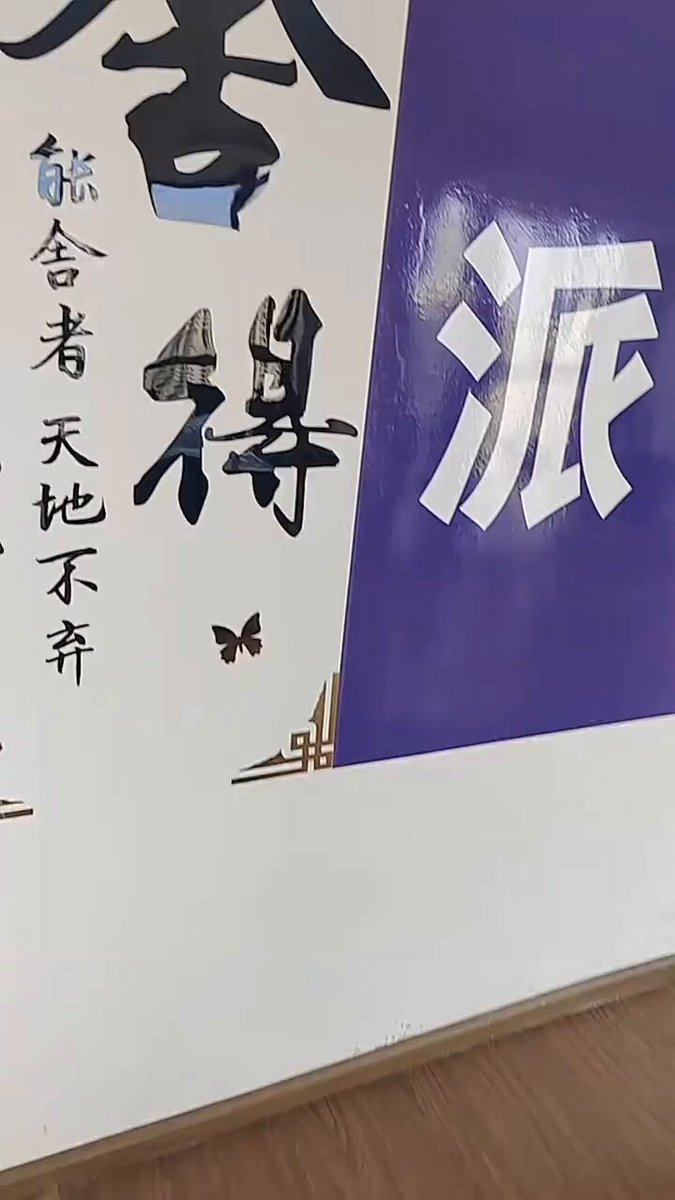 派
舍得
能舍者天地不弃